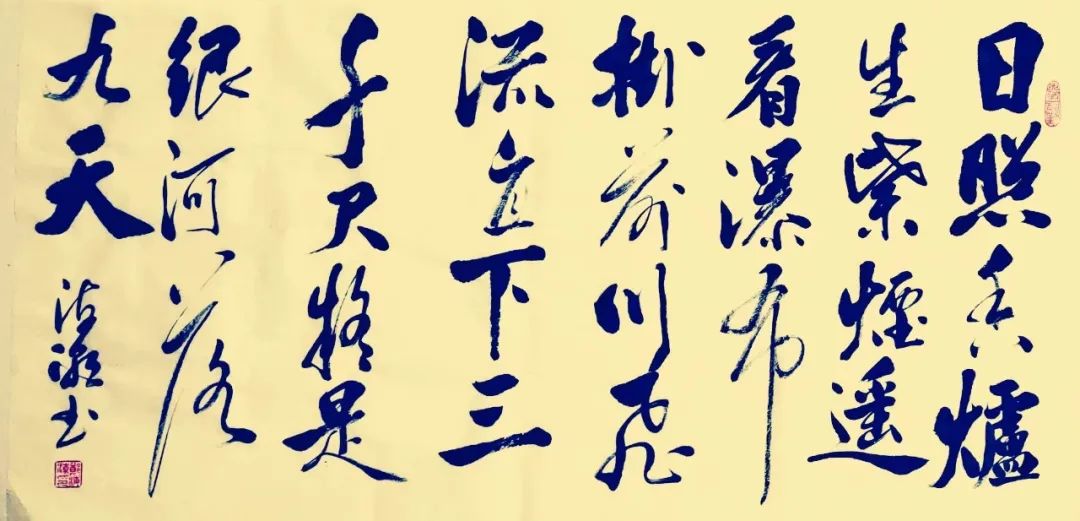 日照香爐
生紫煙遥
看瀑布
掛前川飛
流直下三
千尺疑是
銀河落
九天
书